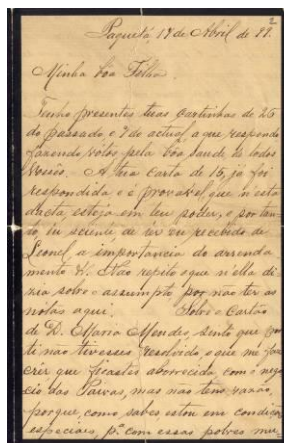 2
Paquetá, 18 de Abril de 99.
Minha boa Filha
Tenho presentes tuas cartinhas de 26
do passado, e 9 do actual, a que respondo
fazendo vótos pela bôa saude de todos
Vossês. A tua carta de 15, já foi
respondida e é provavel, que n'esta
dacta, esteja em teu poder, e por tan-
to, tu sciente de ter eu recebido de
Leonel a importancia do arrenda
mento &. Não repito o que n'ella di
zia sobre o assumpto por não ter as
nótas aqui. Sobre o Cartão
de D. Maria Mendes, sinto que por
ti não tivesses resolvido, o que me faz
crêr que ficastes aborrecida com o nego
cio das Paivas, mas não tens razão,
porque, como sabes estou em condições
especiais, pª com essas pobres mu